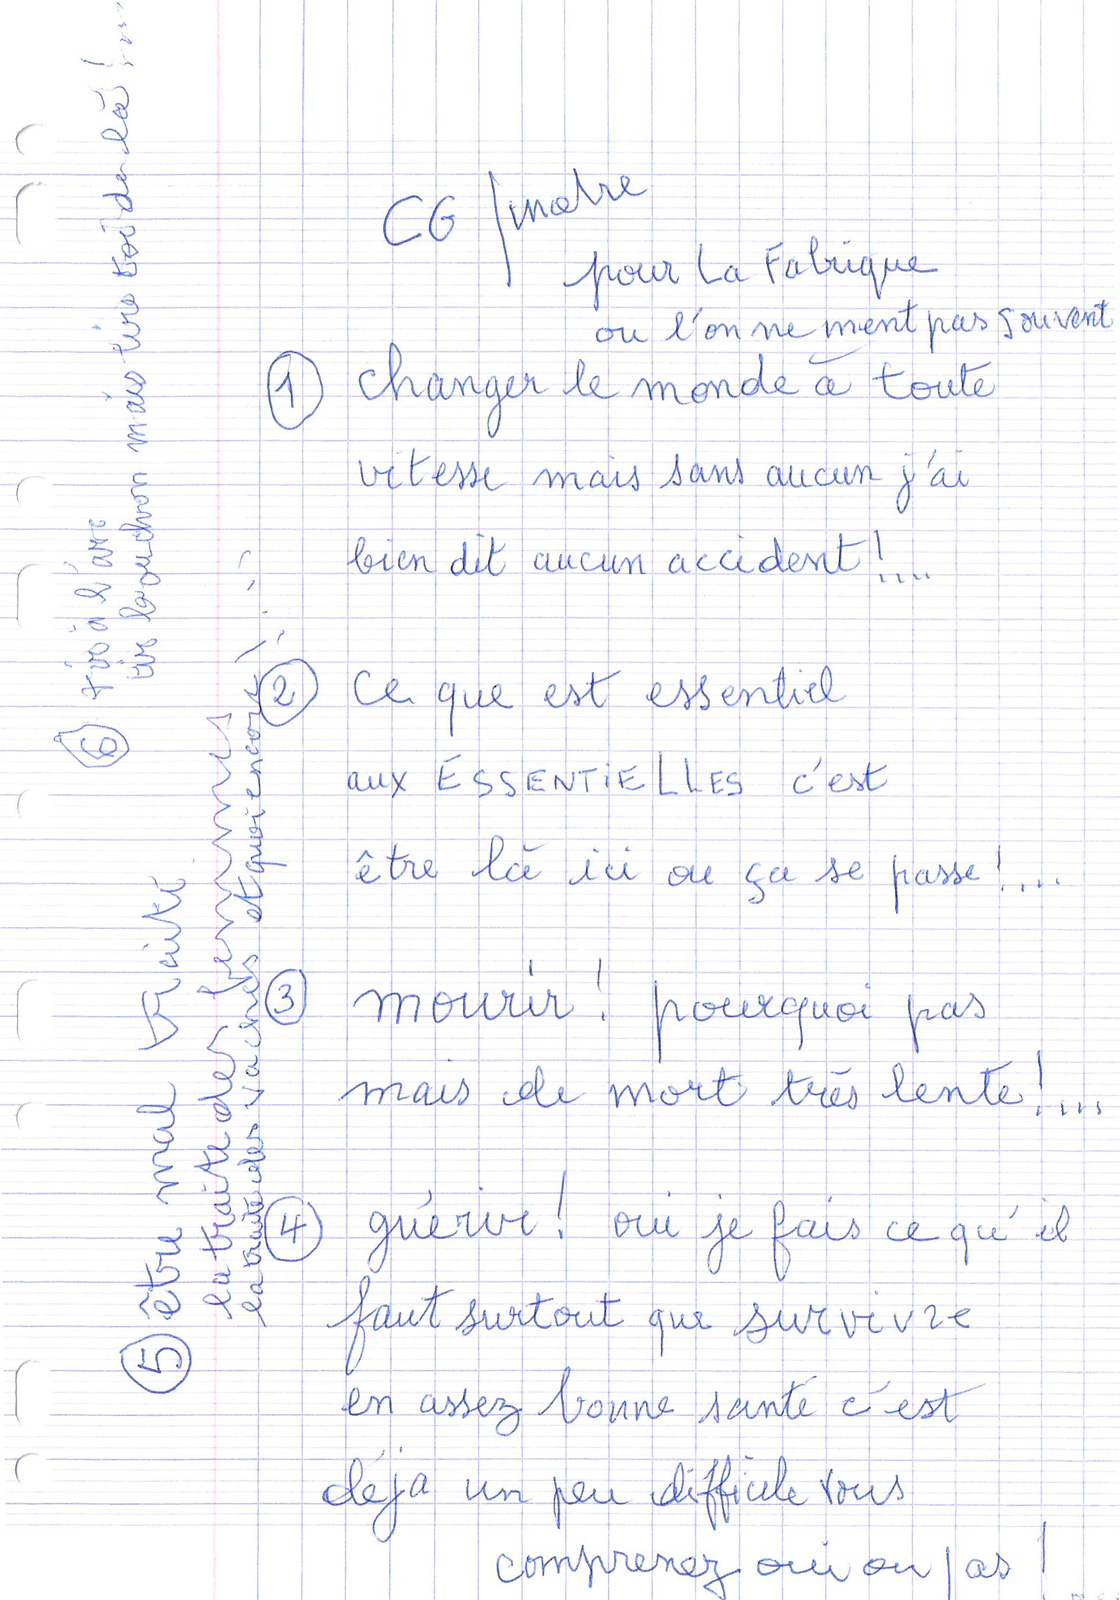 CG /
pour La Fabrique
ou l'on ne ment pas souvent
① changer le monde à toute
vitesse mais sans aucun j'ai
bien dit aucun accident !....
② Ce que est essentiel
aux ESSENTIELLES c'est
être là ici ou ça se passe !....
③ mourir ! pourquoi pas
mais de mort très lente !....
④ guérir ! oui je fais ce qu'il
faut surtout que survivre
en assez bonne santé c'est
déja un peu difficile vous
comprenez oui ou pas !
⑤ être mal traité
la traite des femmes
la traite des vaches et quoi encore !....
⑥ tir à l'arc
tire bouchon mais tire toi de là !....